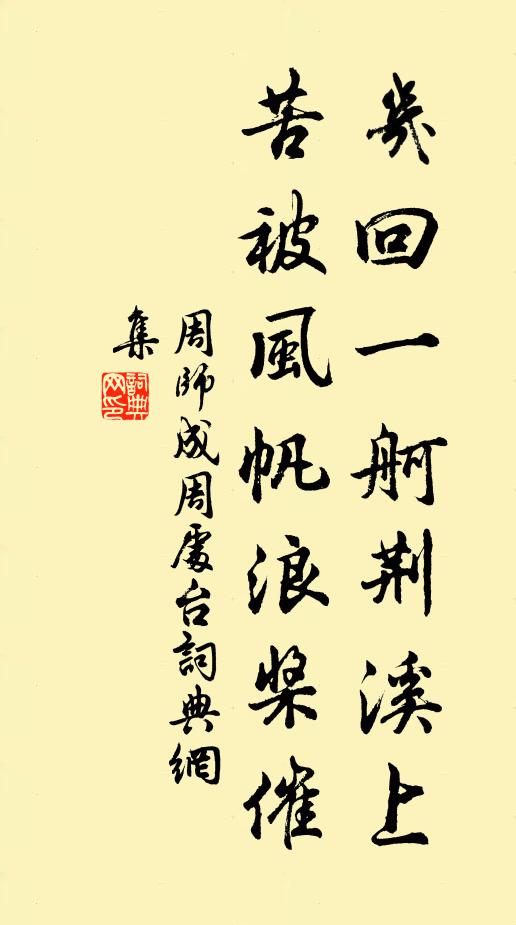 幾回一舸荆溪上
苦被風帆浪槳催
周師成周處台詞典網
集
詞典
网印